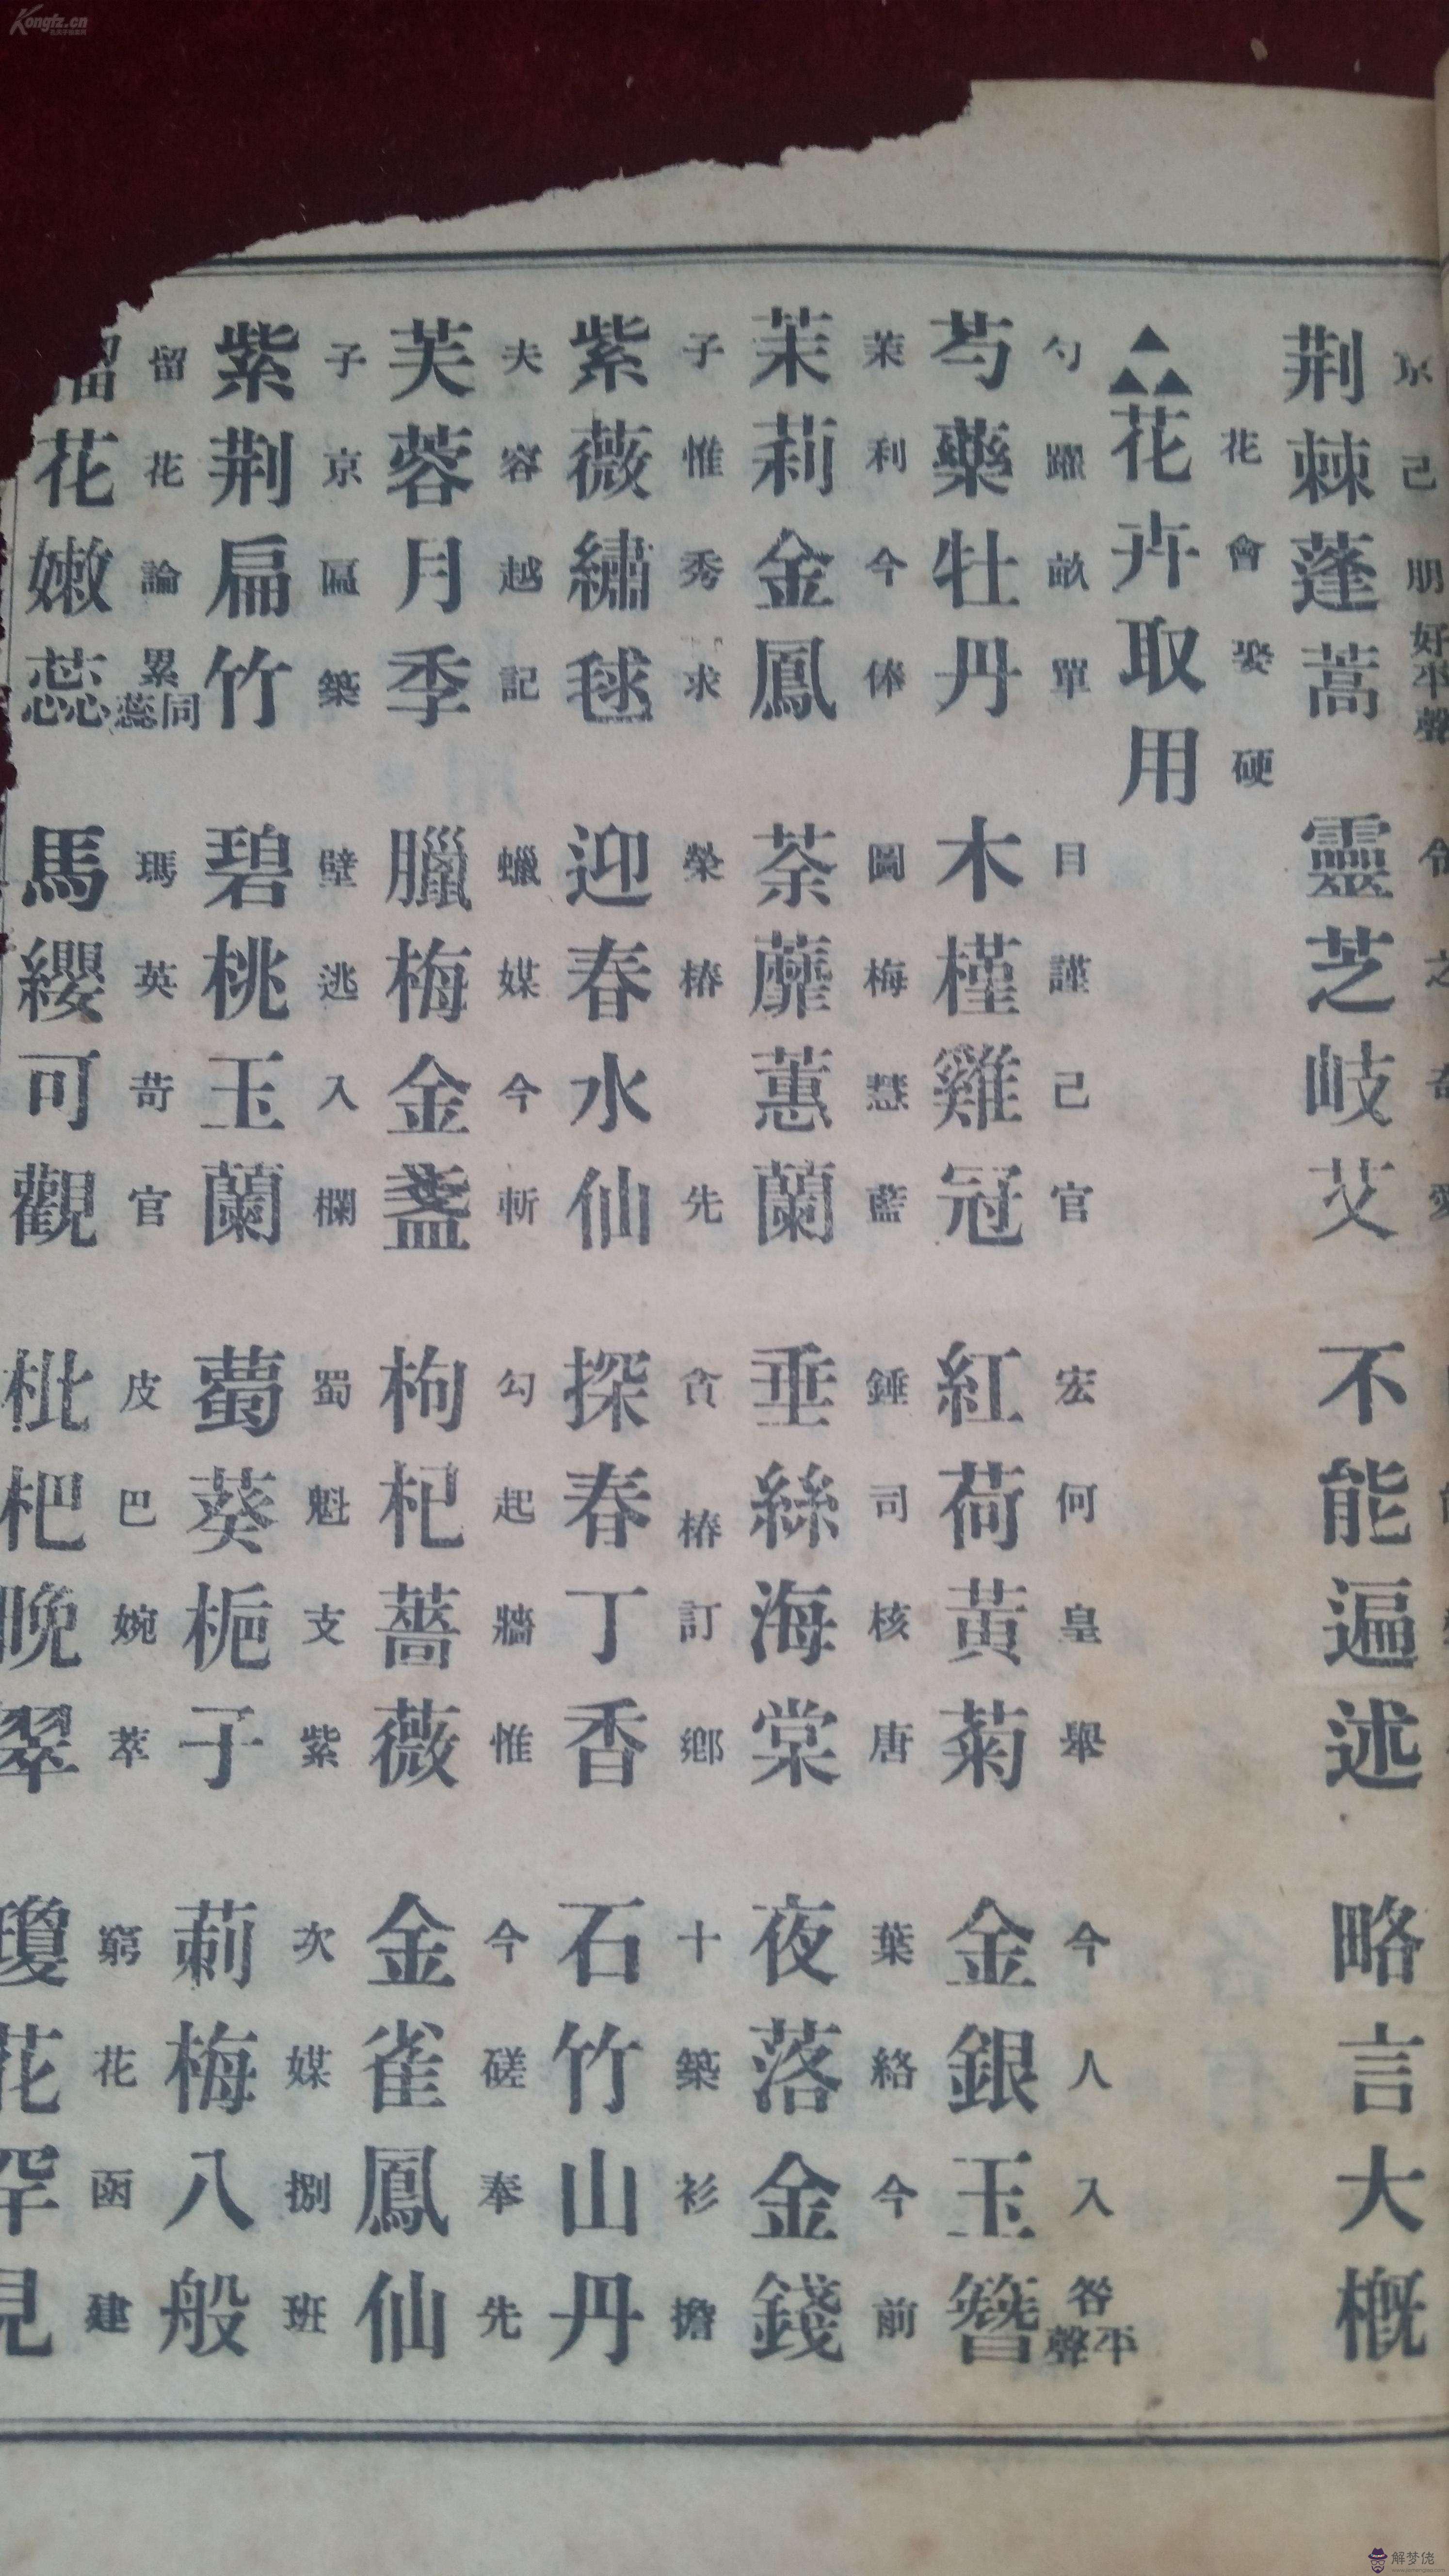 京己朋好平聲
荆棘蓬蒿 靈芝岐艾 不能遍述 略言大概
花會娶硬
▲▲▲花卉取用
勺躍畝單 目謹己官 宏何皇舉 今人入昝平聲
芍藥牡丹 木槿雞冠 紅荷黃菊 金銀玉簪
茉利今俸 圖梅慧藍 錘司核唐 葉絡今前
茉莉金鳳 荼蘼蕙蘭 垂絲海棠 夜落金錢
子惟秀求 榮椿先 貪椿訂鄉 十築衫擔
紫薇繡毬 迎春水仙 探春丁香 石竹山丹
夫容越記 蠟媒今斬 勾起牆惟 今磋奉先
芙蓉月季 臘梅金盞 枸杞薔薇 金雀鳳仙
子京匾築 壁逃入欄 蜀魁支紫 次媒捌班
紫荆扁竹 碧桃玉蘭 蔔葵梔子 莿梅八般
留花論累蕊同 瑪英苛官 皮巴婉萃 窮花函建
花嫩蕊 馬纓可觀 枇杷晚翠 瓊花罕見
Kongfz.cn
解梦佬